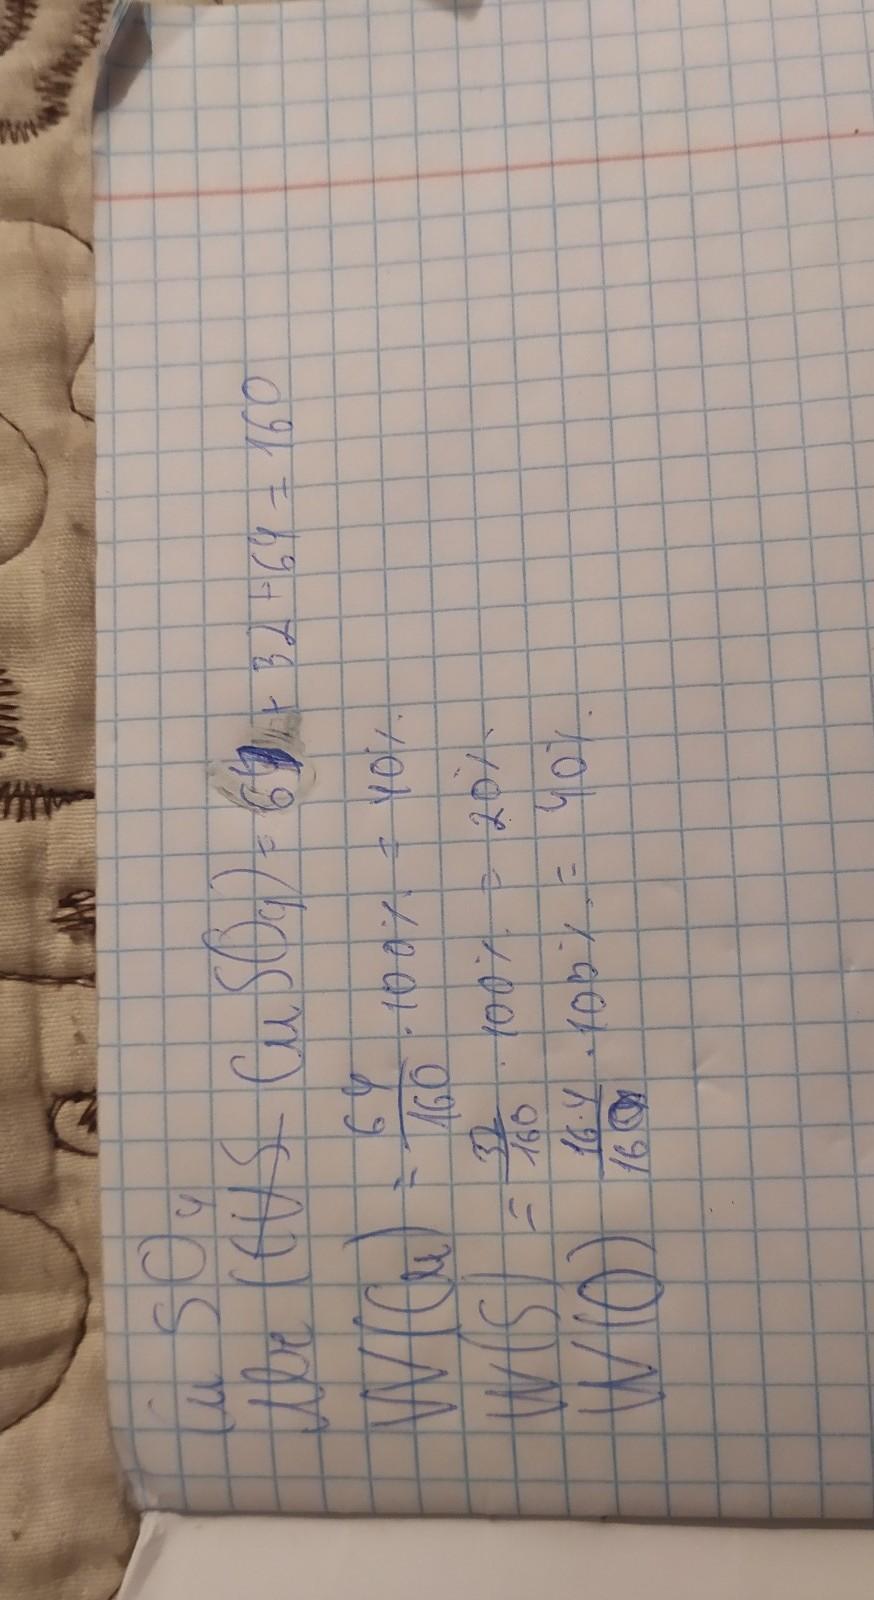 CuSO4
Mr (CuS CuSO4) = 64 + 32 + 64 = 160
W(Cu) = 64/160 · 100% = 40%
W(S) = 32/160 · 100% = 20%
W(O) 16·4/160 · 100% = 40%